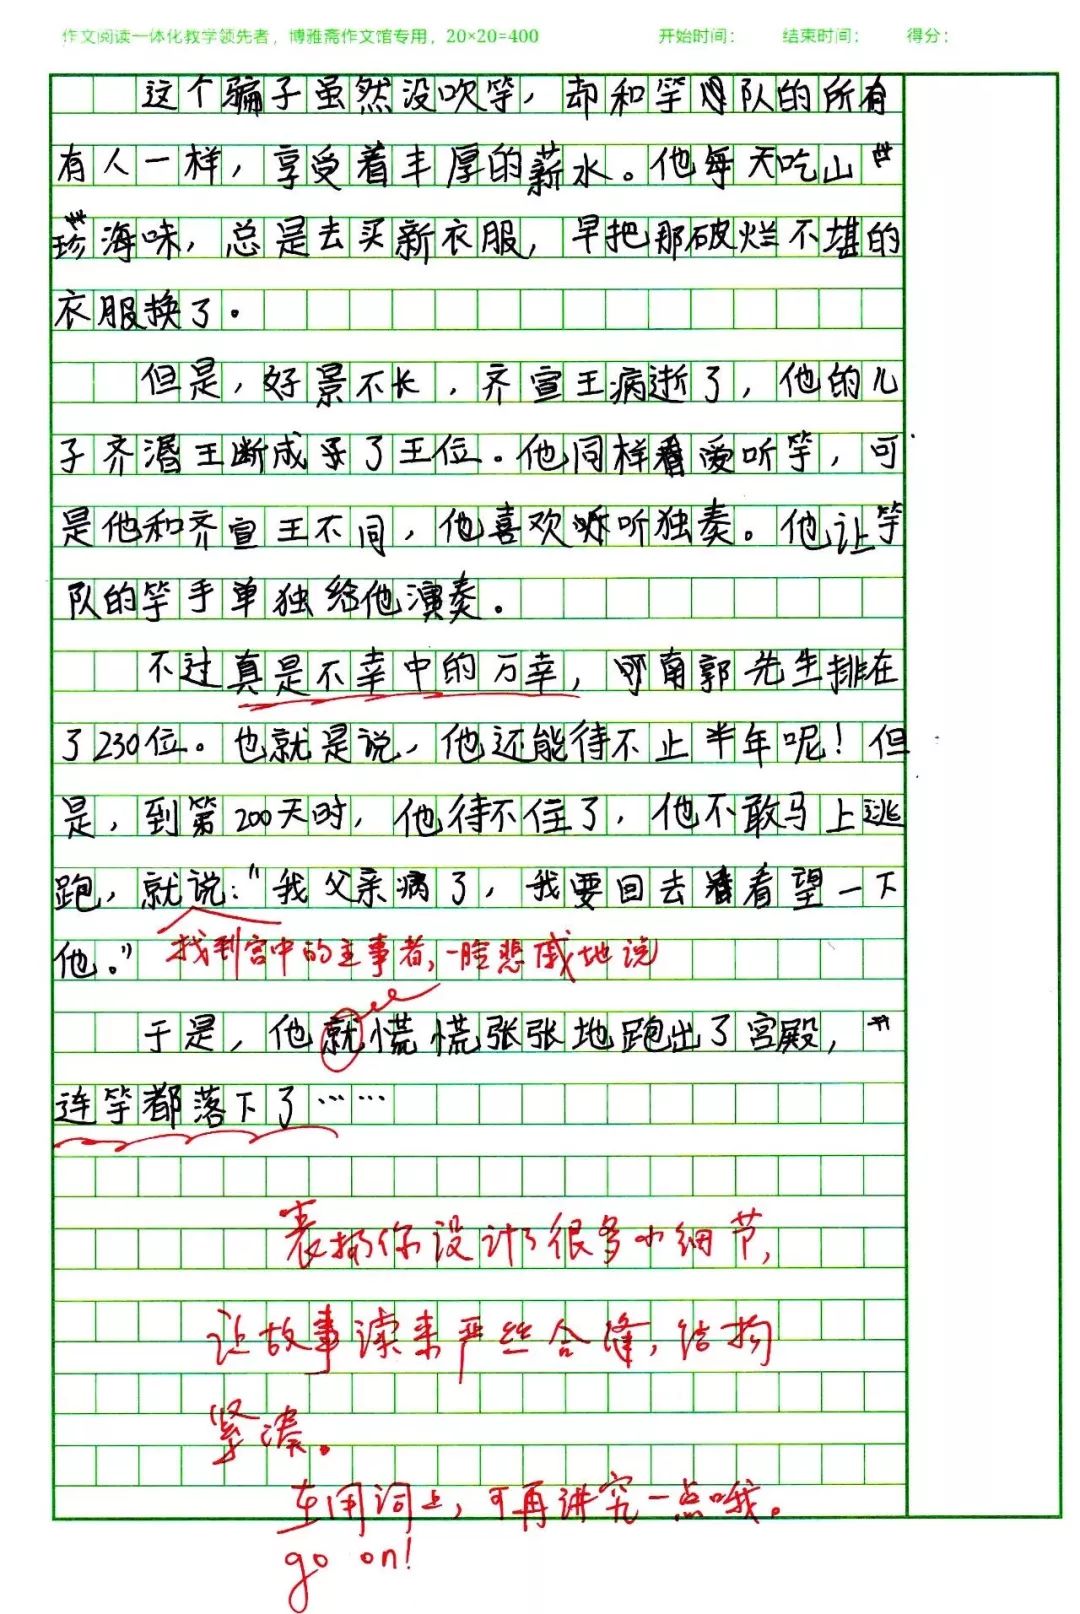 作文阅读一体化教学领先者，博雅斋作文馆专用，20×20=400 开始时间： 结束时间： 得分：
这个骗子虽然没吹竽，却和竽队的所有
有人一样，享受着丰厚的薪水。他每天吃山
珍海味，总是去买新衣服，早把那破烂不堪的
衣服换了。
但是，好景不长，齐宣王病逝了，他的儿
子齐湣王断成了王位。他同样爱听竽，可
是他和齐宣王不同，他喜欢听独奏。他让竽
队的竽手单独给他演奏。
不过真是不幸中的万幸，南郭先生排在
了230位。也就是说，他还能待不止半年呢！但
是，到第200天时，他待不住了，他不敢马上逃
跑，就说：“我父亲病了，我要回去看望一下
他。”
找到宫中的主事者，一脸悲戚地说
于是，他就慌慌张张地跑出了宫殿，
连竽都落下了……
表扬你设计了很多小细节，
让故事读来严丝合缝，结构
紧凑。
在用词上，可再讲究一点哦。
go on!